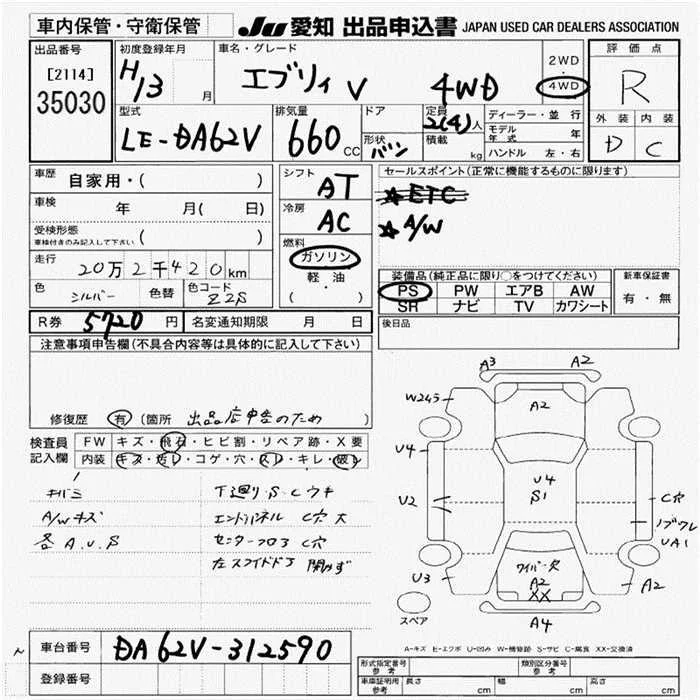 車内保管・守衛保管
JU 愛知 出品申込書 JAPAN USED CAR DEALERS ASSOCIATION
出品番号
[2114]
35030
初度登録年月
H13 月
車名・グレード
エブリィ V 4WD
2WD
・
4WD
評価点
R
外装 内装
D C
型式
LE-DA62V
排気量
660 CC
ドア
形状 バン
定員 2(4)人
積載 kg
ディーラー・並行
モデル年式 年
ハンドル 左・右
車歴 自家用・( )
車検 年 月( 日)
受検形態
車検付きのみ記入して下さい ( )
走行 20万2千420km
色 シルバー 色替 色コード Z2S
シフト AT
冷房 AC
燃料
ガソリン
軽・油
( )
セールスポイント(正常に機能するものに限ります)
☆ETC
☆A/W
装備品(純正品に限り○をつけてください)
PS PW エアB AW
SR ナビ TV カワシート
新車保証書
有・無
R券 5720円 名変通知期限 月 日
後日品
注意事項申告欄(不具合内容等は具体的に記入して下さい)
修復歴 有 (箇所 出品店申告のため )
検査員記入欄
FW キズ・飛石・ヒビ割・リペア跡・X要
内装 キズ・汚レ・コゲ・穴・スレ・キレ・破レ
A/Wキズ
各A.U.S
下廻りS・Cウキ
エンドパネル C穴大
センターフロア C穴
左スライドドア 開かず
A3 A2
W245 A2
U4 U4
S1
U2 C穴
UA1
ワイパー欠
A2
XX
U3 A2
スペア A4
A-キズ E-エクボ U-凹み W-補修跡 S-サビ C-腐食 XX-交換済
車台番号 DA62V-312590
登録番号
形式指定番号
参考
類別区分番号
参考
車庫証明用
参考
長さ cm 幅 cm 高さ cm